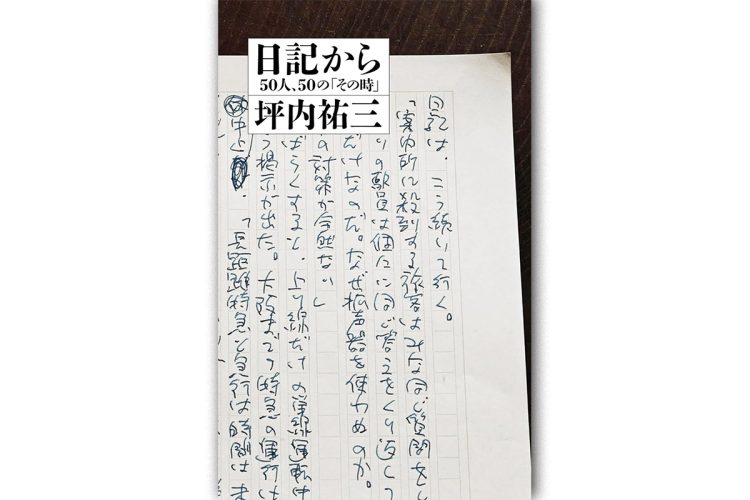 日記から
50人、50の「その時」
坪内祐三
日記は、こう続いて行く。
「案内所に殺到する旅客はみな同じ質問をし
りの駅員は個々に同じ答えをくり返して
だけなのだ。なぜ拡声器を使わぬのか。
の対策が全然ない」
ばらくすると、上り線だけの単線運転は
う掲示が出た。大阪までの特急の運行は
中止
「長距離特急と急行は時間は未